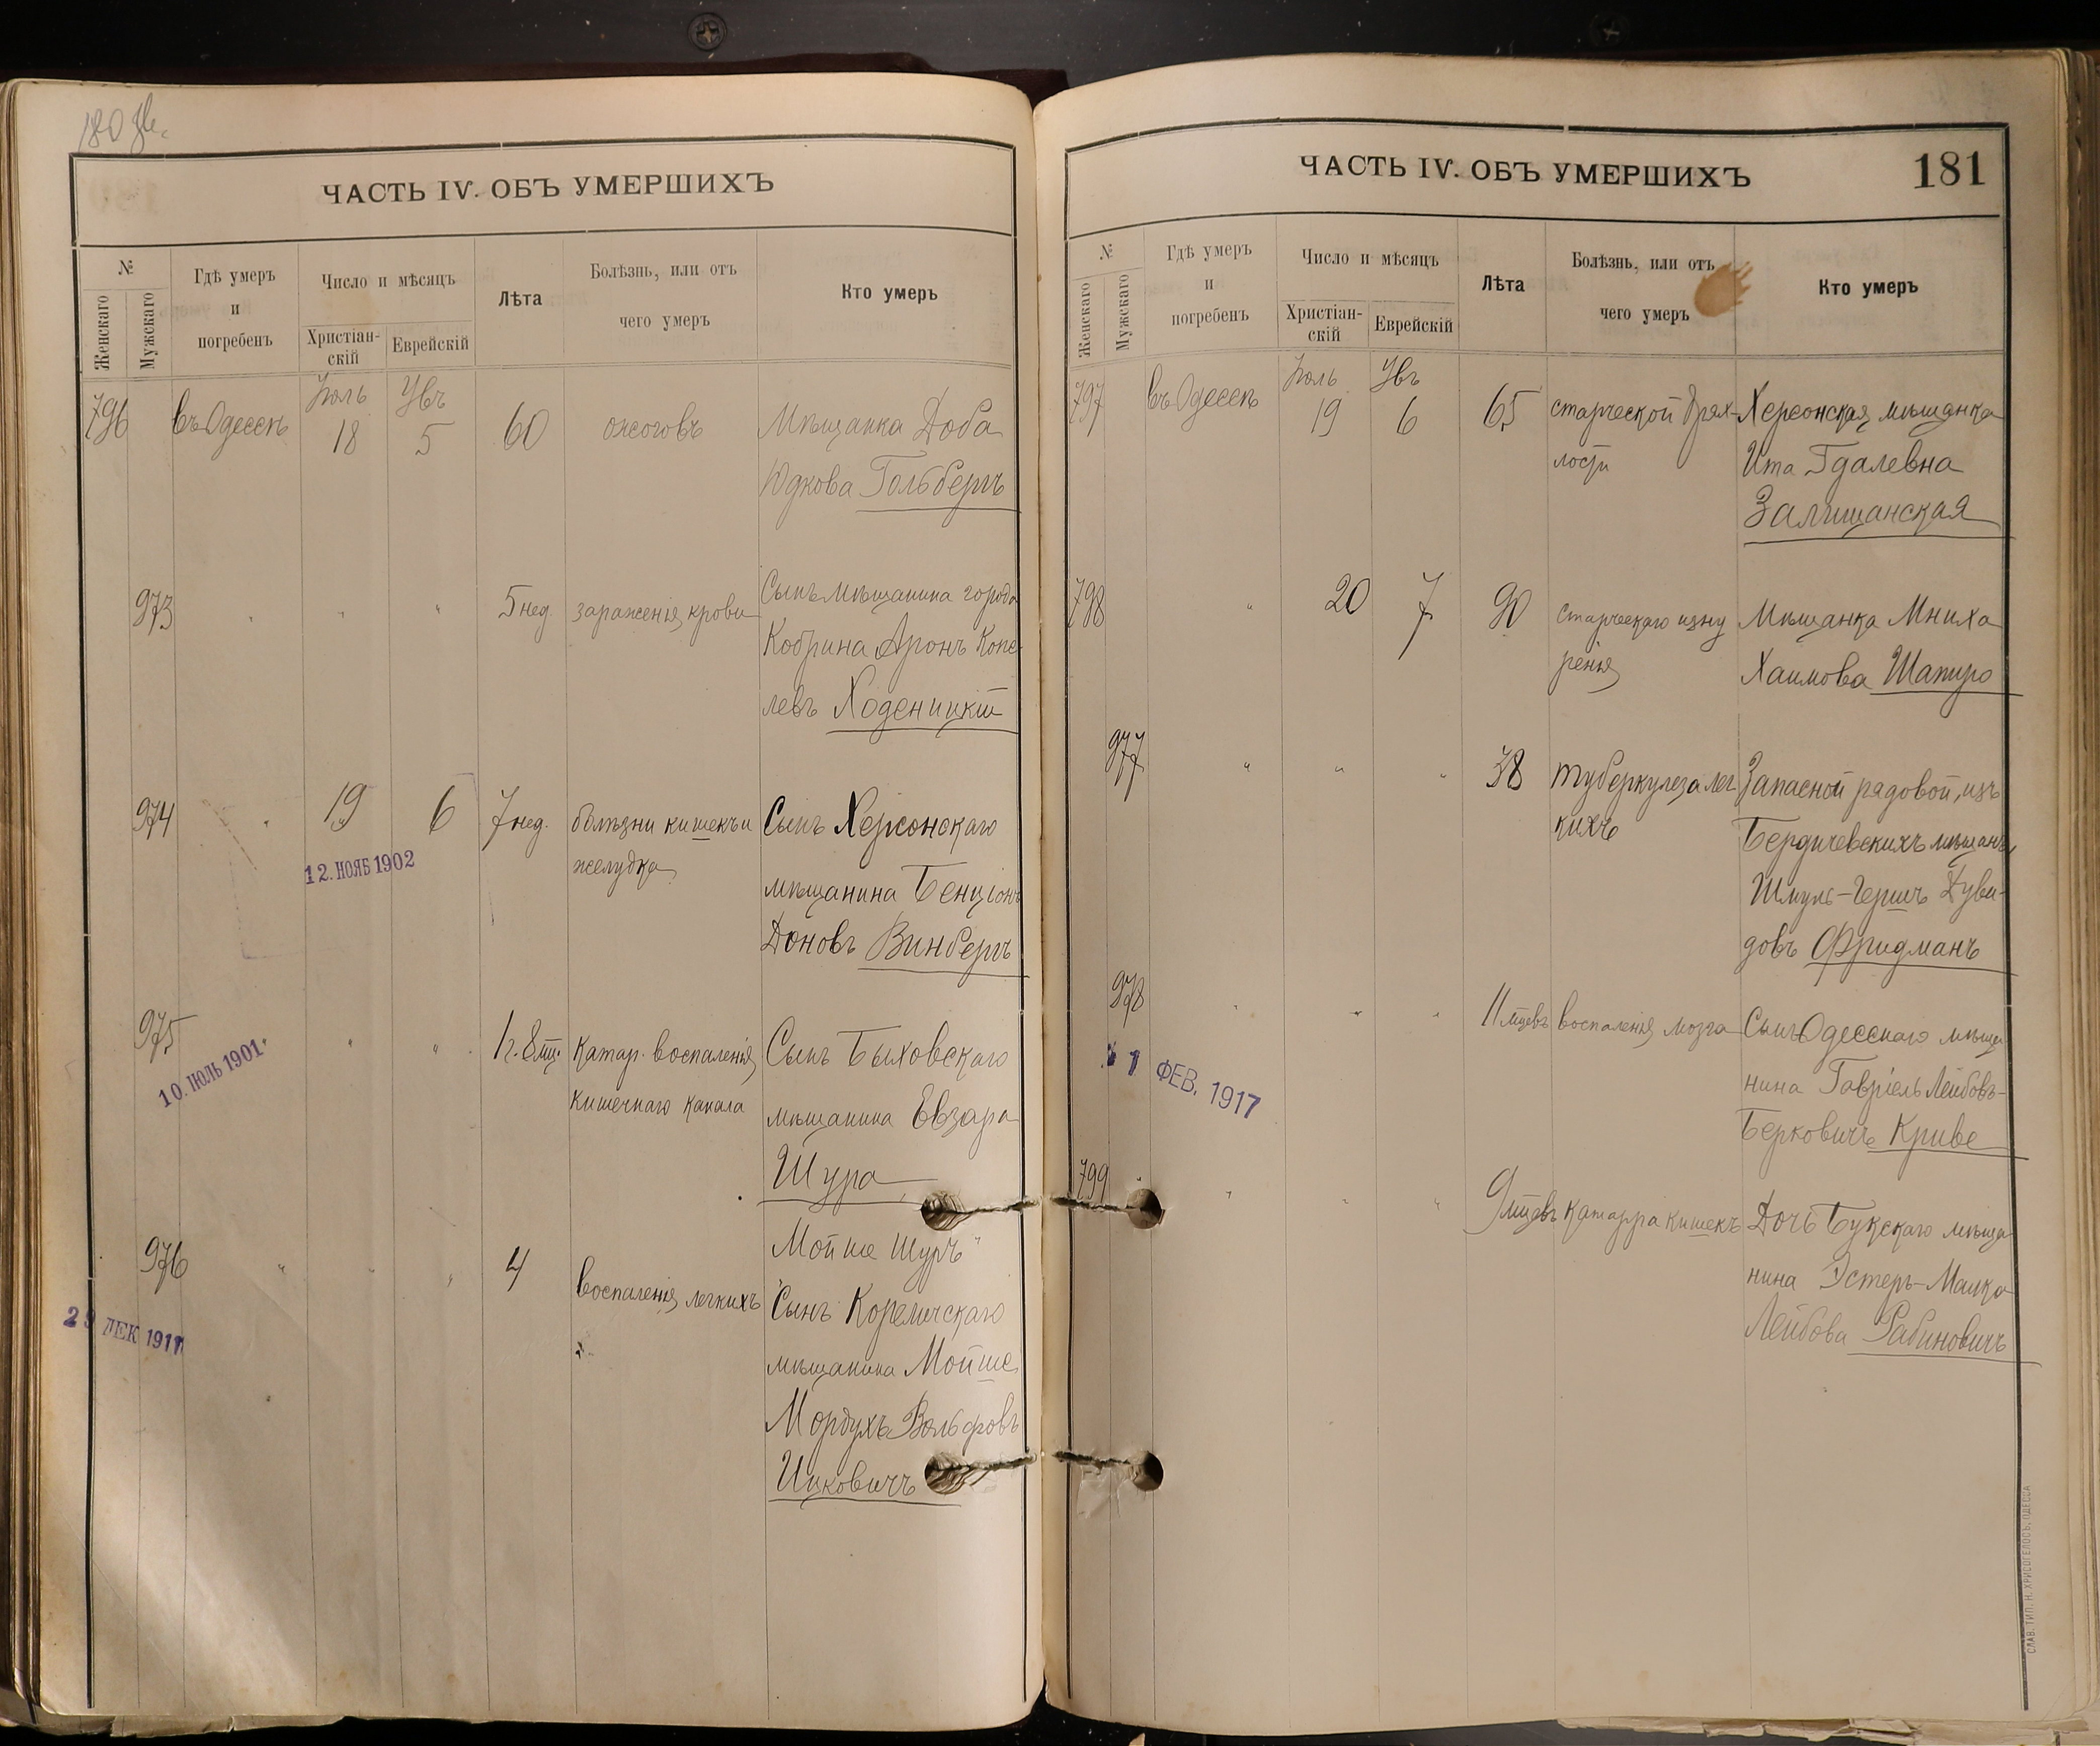 180 об.
ЧАСТЬ IV. ОБЪ УМЕРШИХЪ
№
Женскаго
Мужскаго
Гдѣ умеръ
и
погребенъ
Число и мѣсяцъ
Христіан-
скій
Еврейскій
Лѣта
Болѣзнь, или отъ
чего умеръ
Кто умеръ
Іюль
796 въ Одессѣ 18 5 60 ожоговъ Мѣщанка Доба
Юдкова Гольбергъ
973 " " " 5 нед. зараженія крови Сынъ мѣщанина города
Кобрина Аронъ Копе-
левъ Ходеницкій
974 " 19 6 7 нед. болѣзни кишекъ и Сынъ Херсонскаго
желудка
12. НОЯБ 1902
мѣщанина Бенціонъ
Доновъ Винбергъ
975 " " " 1 г. 8 мц. катар. воспаленія Сынъ Быховскаго
10. ІЮЛЬ 1901
кишечнаго канала мѣщанина Евзара
Шура
Мойше Шуръ"
976 " " " 4 воспаленія легкихъ Сынъ Кореличскаго
29 ДЕК 1911
мѣщанина Мойше
Мордухъ Вольфовъ
Ицковичъ
ЧАСТЬ IV. ОБЪ УМЕРШИХЪ
181
№
Женскаго
Мужскаго
Гдѣ умеръ
и
погребенъ
Число и мѣсяцъ
Христіан-
скій
Еврейскій
Лѣта
Болѣзнь, или отъ
чего умеръ
Кто умеръ
Іюль
797 въ Одессѣ 19 6 65 старческой дрях- Херсонская мѣщанка
лости Ита Гдалевна
Залищанская
798 " 20 7 90 старческаго изну Мѣщанка Мниха
ренія Хаимова Шапиро
977 " " " 38 туберкулеза лег Запасной рядовой, изъ
кихъ Бердичевскихъ мѣщанъ,
Шмуль-Гершъ Дуви-
довъ Фридманъ
978 " " " 11 мцевъ воспаленія мозга Сынъ Одесскаго мѣща
1 ФЕВ. 1917
нина Гавріель Лейбовъ-
Берковичъ Криве
799 " " " 9 мцевъ катарра кишекъ Дочь Букскаго мѣща
нина Эстеръ-Малка
Лейбова Рабиновичъ
СЛАВ. ТИП. Н. ХРИСОГЕЛОСЪ. ОДЕССА